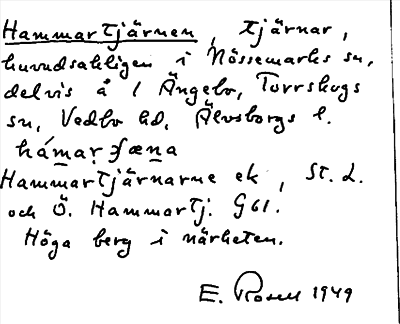 Hammartjärnen, tjärnar,
huvudsakligen i Nössemarks sn,
delvis å 1 Ängebo, Torrskogs
sn, Vedbo hd, Älvsborgs l.
Hammartjärnarne ek, St. L.
och Ö. Hammartj. G61.
Höga berg i närheten.
E. Rosell 1949